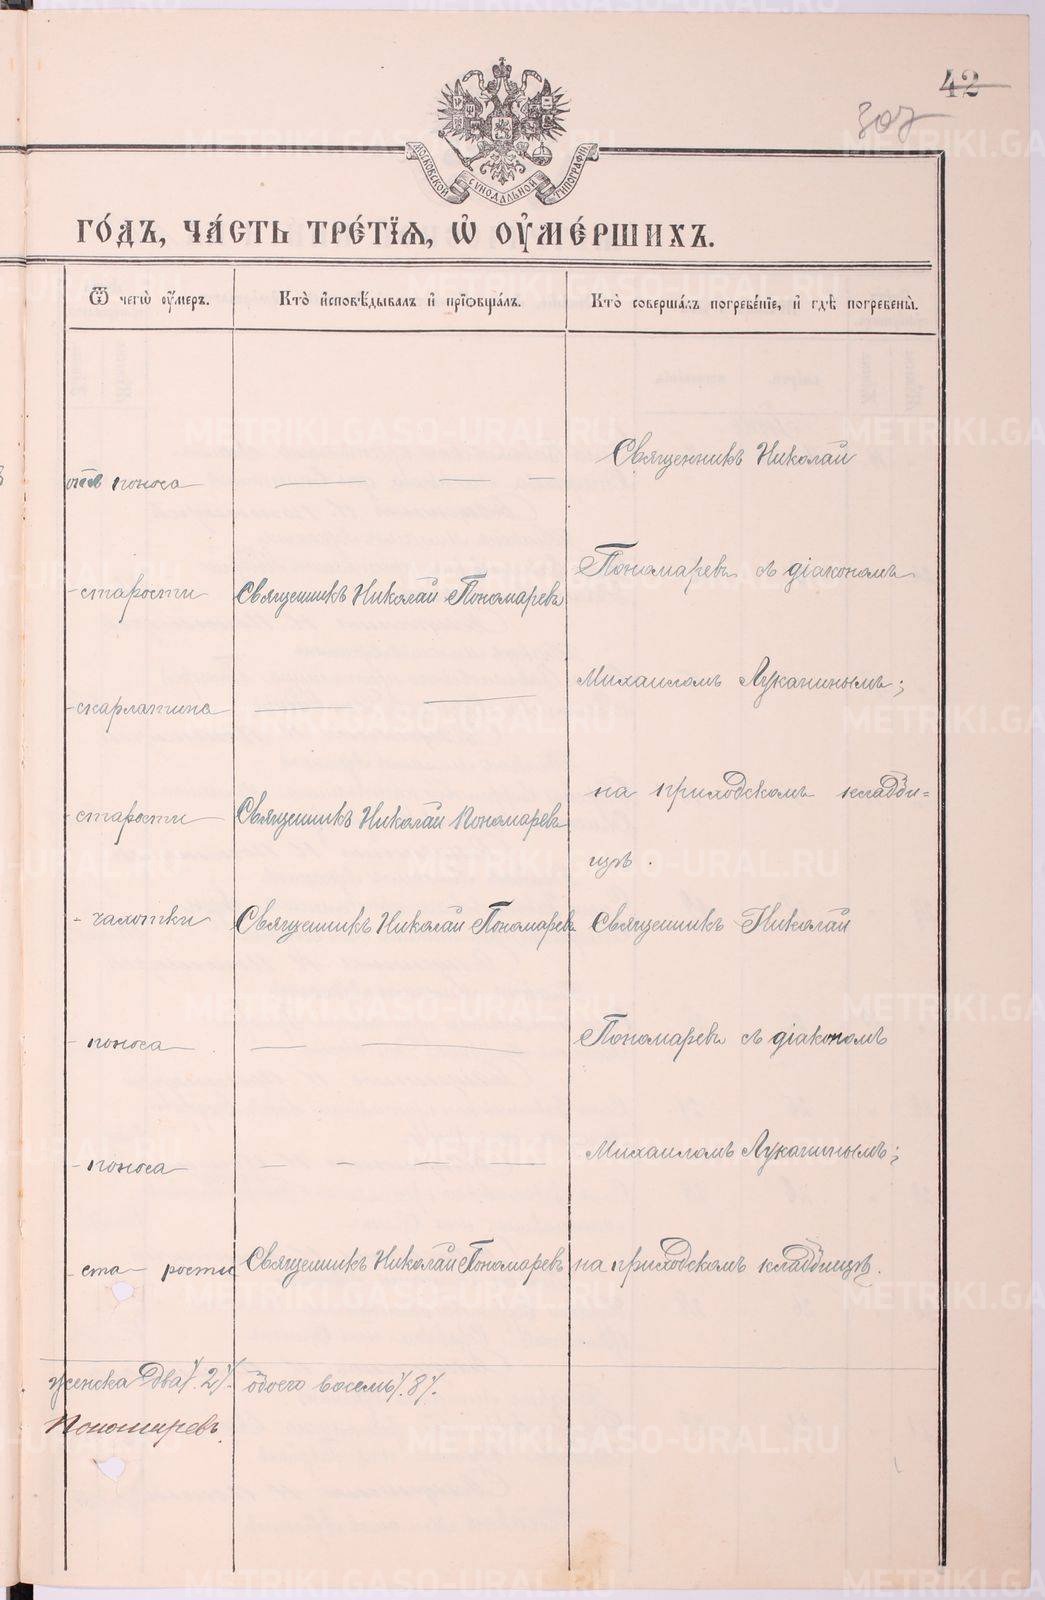 42
307
МОСКОВСКОЙ СѴНОДАЛЬНОЙ ТИПОГРАФІИ
ГО́ДЪ, ЧА́СТЬ ТРЕ́ТІѦ, Ѡ҆ ОУ҆МЕ́РШИХЪ.
Ѿ чегѡ̀ оу҆́меръ.
Кто̀ и҆сповѣ́дывалъ и҆ прїѡбща́лъ.
Кто̀ соверша́лъ погребе́нїе, и҆ гдѣ̀ погребены̀.
отъ поноса — — —
Священникъ Николай
- старости Священникъ Николай Пономаревъ
Пономаревъ съ діакономъ
- скарлатина — —
Михаиломъ Лукانинымъ;
- старости Священникъ Николай Пономаревъ
на приходскомъ кладби=
щѣ.
- чахотки Священникъ Николай Пономаревъ
Священникъ Николай
- поноса — —
Пономаревъ съ діакономъ
- поноса — — — —
Михаиломъ Луканинымъ;
- старости Священникъ Николай Пономаревъ
на приходскомъ кладбищѣ.
женска два /.2/. обоего восемь /.8/.
Пономаревъ.
METRIKI.GASO-URAL.RU